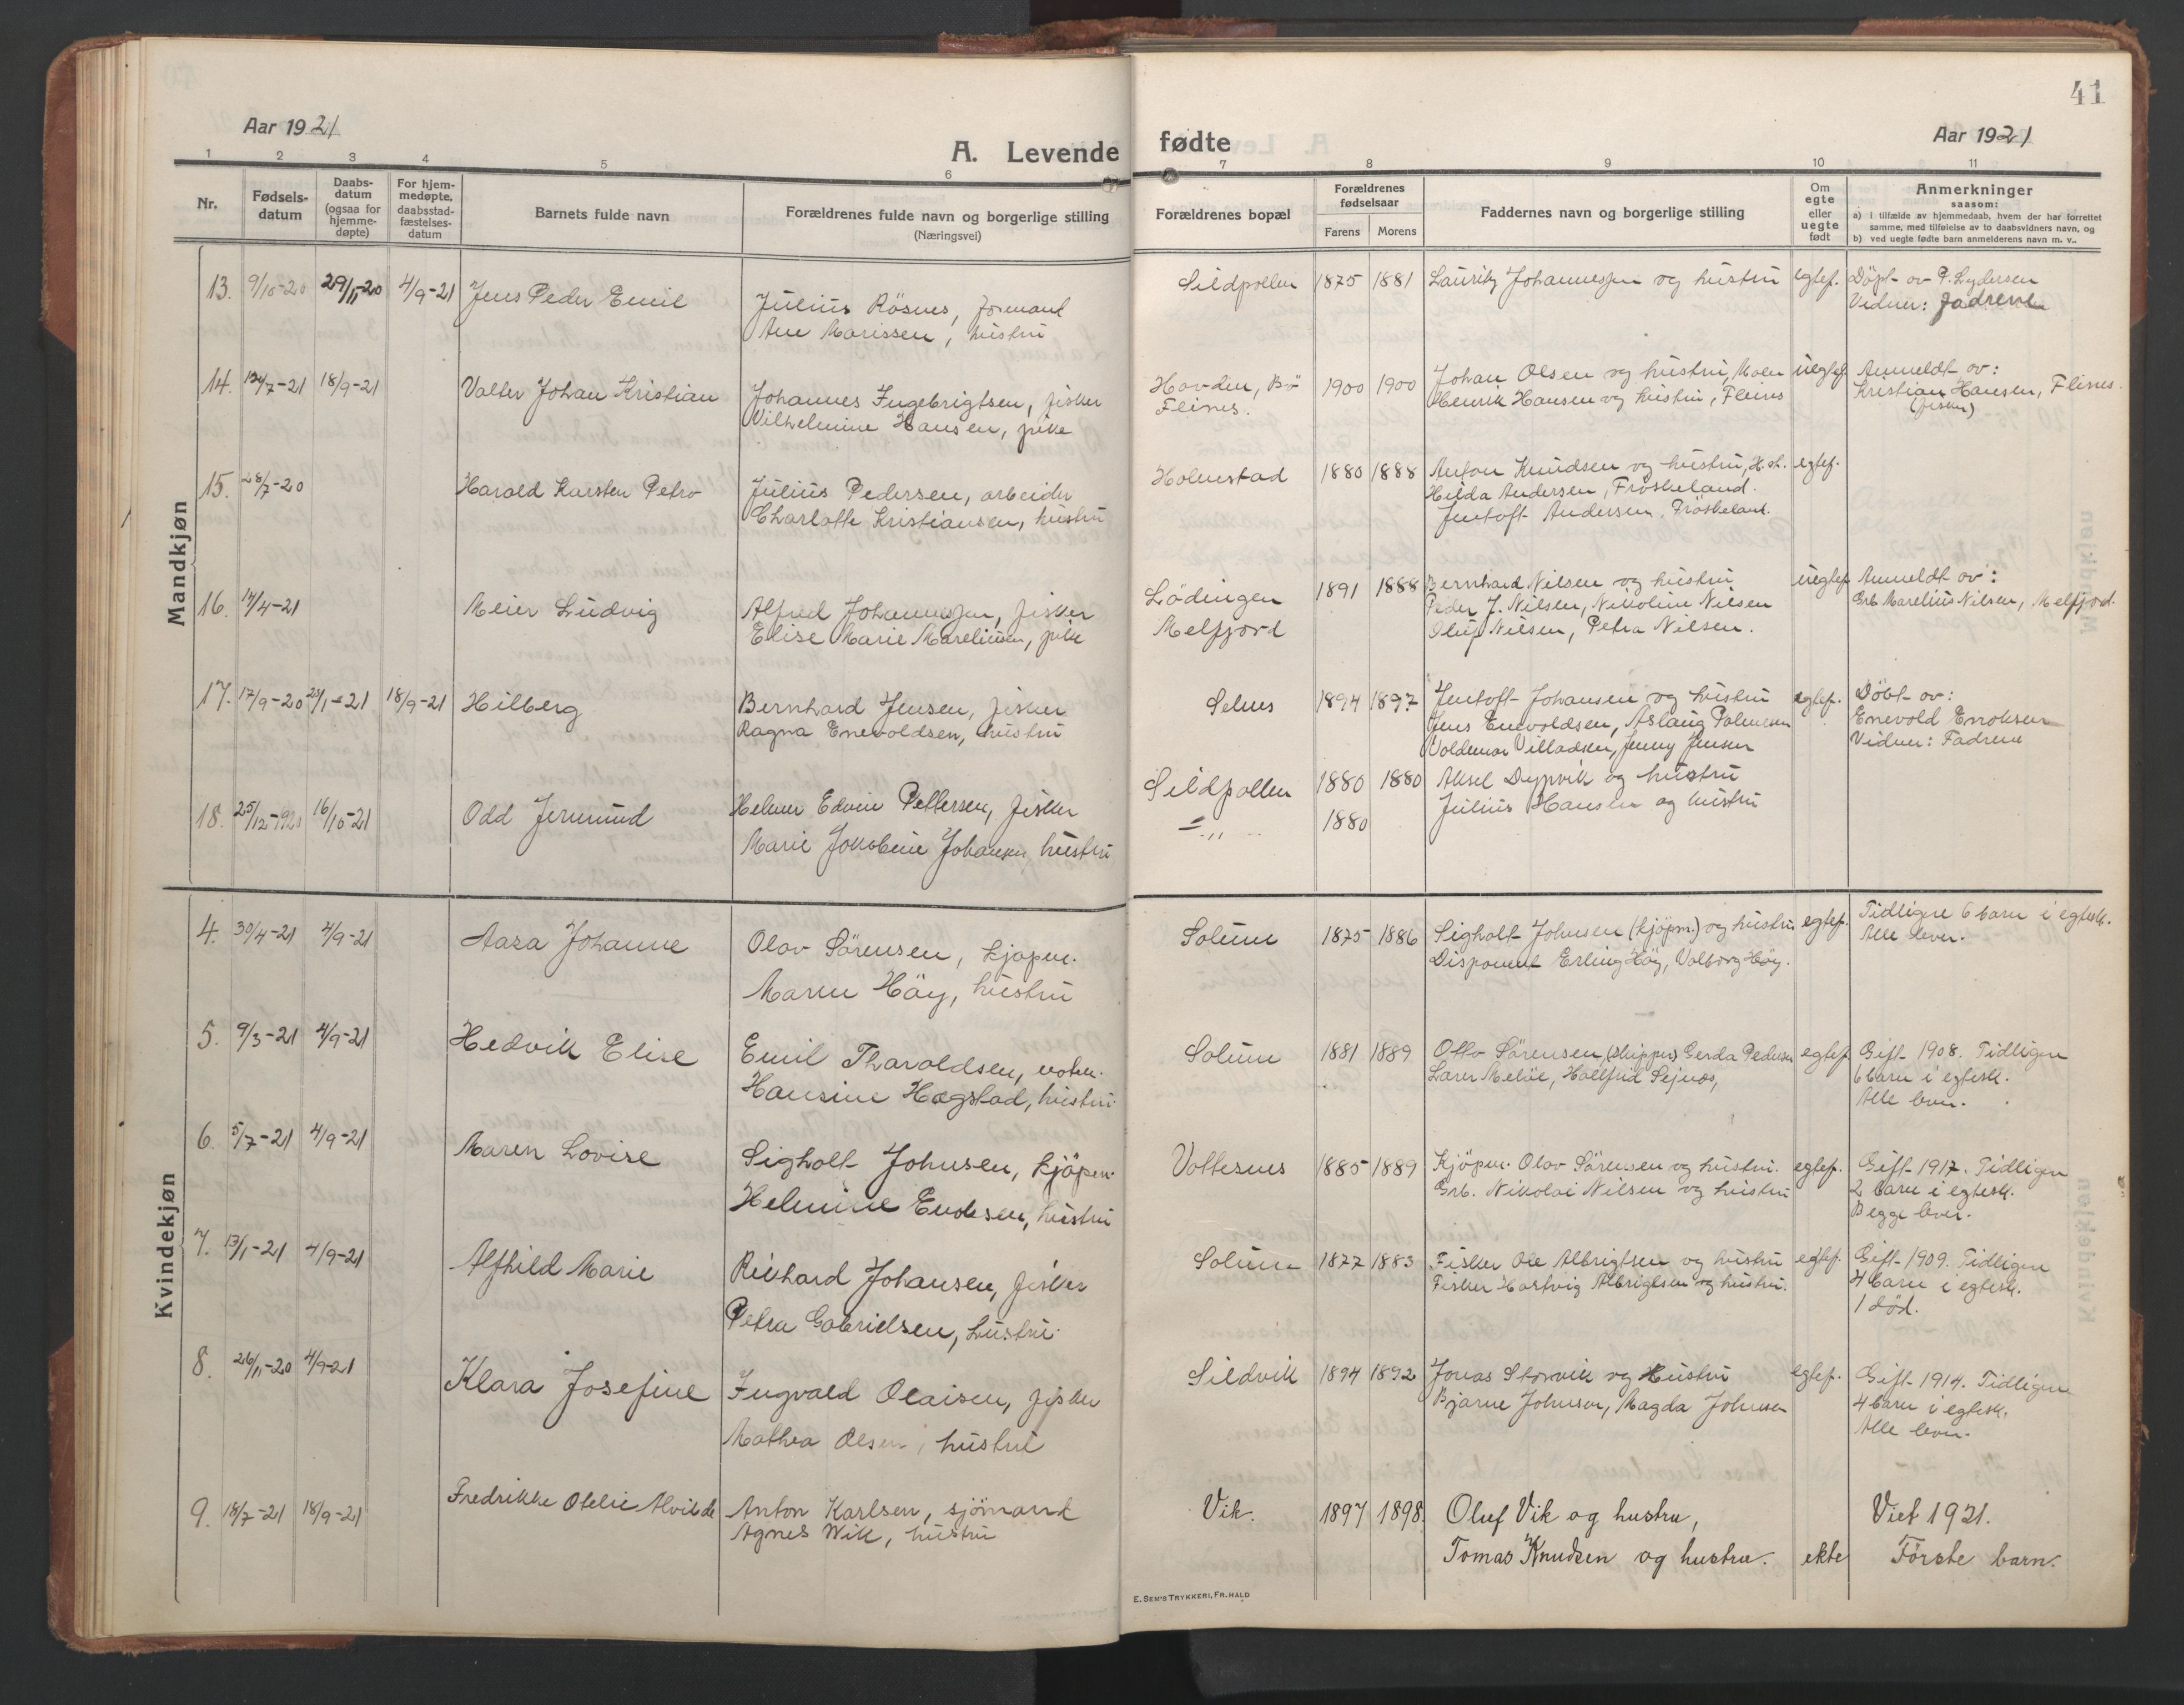 41
Aar 1921
A. Levende fødte
Aar 1921
1 2 3 4 5 6 7 8 9 10 11
Nr.
Fødsels-
datum
Daabs-
datum
(ogsaa for
hjemme-
døpte)
For hjem-
medøpte,
daabsstad-
fæstelses-
datum
Barnets fulde navn
Forældrenes fulde navn og borgerlige stilling
(Næringsvei)
Forældrenes bopæl
Forældrenes
fødselsaar
Farens Morens
Faddernes navn og borgerlige stilling
Om
egte
eller
uegte
født
Anmerkninger
saasom:
a) i tilfælde av hjemmedaab, hvem der har forrettet
samme, med tilføielse av to daabsvidners navn, og
b) ved uegte fødte barn anmelderens navn m. v..
Mandkjøn
13. 9/10-20 29/11-20 4/9-21 Jens Peder Emil
Julius Rösnes, formand
Ane Marissen, hustru
Sildpollen 1875 1881 Lauritz Johannessen og hustru egtef.
Döpt ov P. Lydersen
Vidner: Fadrene
14. 12/7-21 18/9-21 Valter Johan Kristian
Johannes Ingebrigtsen, fisker
Vilhelmine Hansen, pike
Hovden, Bö
Flines.
1900 1900
Johan Olsen og hustru, Moen
Henrik Hansen og hustru, Fleines
uegtef.
Anmeldt ov:
Kristian Hansen, Flines.
(fisker)
15. 28/7-20 Harald Karsten Petro
Julius Pedersen, arbeider
Charlotte Kristiansen, hustru
Holmstad 1880 1888
Anton Knudsen og hustru, H.st.
Hilda Andersen, Fröskeland.
Jentoft Andersen, Fröskeland.
egtef.
16. 14/4-21 Meier Ludvig
Alfred Johannessen, fisker
Elise Marie Mareliussen, pike
Lödingen
Melfjord
1891 1888
Bernhard Nilsen og hustru
Peder J. Nilsen, Nikoline Nilsen
Oluf Nilsen, Petra Nilsen.
uegtef.
Anmeldt ov:
Grb. Marelius Nilsen, Melfjord.
17. 17/9-20 23/1-21 18/9-21 Hilberg
Bernhard Jensen, fisker
Ragna Enevoldsen, hustru
Selnes 1894 1897
Jentoft Johansen og hustru
Jens Enevoldsen, Aslaug
Voldemar Villadsen, Jenny Jensen
egtef.
Döbt ov:
Enevold Enoksen
Vidner: Fadrene
18. 25/12-1920 16/10-21 Odd Jermund
Helmer Edvin Pettersen, fisker
Marie Jokobine Johansen, hustru
Sildpollen 1880 1880
-„- 1880
Aksel Dypvik og hustru
Julius Hansen og hustru
Kvindekjøn
4. 30/4-21 4/9-21 Aasa Johanne
Olav Sörensen, kjöpm.
Maren Höy, hustru
Solum 1875 1886
Sigholt Johnsen (kjöpm.) og hustru
Disponent Erling Höy, Valborg Höy.
egtef.
Tidligere 6 barn i egtesk.
Alle lever.
5. 9/3-21 4/9-21 Hedvik Elise
Emil Tharaldsen,
Hansine Hægstad, hustru
Solum 1881 1889
Otto Sörensen (skipper) Gerda Pedersen
Meløe, Hallfrid
egtef.
Gift 1908. Tidligere
6 barn i egtesk.
Alle lever.
6. 5/7-21 4/9-21 Maren Lovise
Sigholt Johnsen, kjöpm.
Helmine Endresen, hustru
Vottesnes 1885 1889
Kjöpm. Olav Sörensen og hustru.
Grb. Nikolai Nilsen og hustru
egtef.
Gift 1917. Tidligere
2 barn i egtesk.
Begge lever.
7. 13/1-21 4/9-21 Alfhild Marie
Rikhard Johansen, fisker
Petra Gabrielsen, hustru.
Solum 1877 1883
Fisker Ole Albrigtsen og hustru
Fisker Hartvig Albrigtsen og hustru.
egtef.
Gift 1909. Tidligere
4 barn i egtesk.
1 död.
8. 26/11-20 4/9-21 Klara Josefine
Ingvald Olaisen, fisker
Mathea Olsen, hustru
Sildvik 1894 1892
Jonas Storvik og Hustru
Bjarne Johnsen, Magda Johnsen
egtef.
Gift 1914. Tidligere
4 barn i egtesk.
Alle lever.
9. 18/7-21 18/9-21 Fredrikke Otelie Alvilde
Anton Karlsen, sjömand
Agnes Wik, hustru
Vik. 1897 1898.
Oluf Vik og hustru,
Tomas Knudsen og hustru.
ekte
Viet 1921.
Förste barn.
E. SEM'S TRYKKERI, FR.HALD